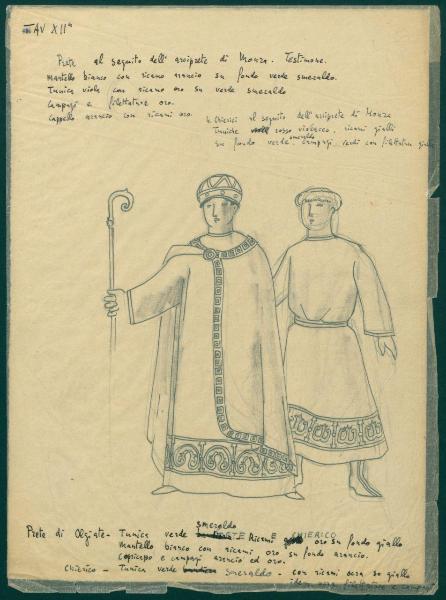 TAV XIIª
Prete al seguito dell'arciprete di Monza. Testimone.
Mantello bianco con ricamo arancio su fondo verde smeraldo.
Tunica viola con ricamo oro su verde smeraldo
Campagi e filettature oro.
Cappello arancio con ricami oro.
4 Chierici al seguito dell'arciprete di Monza
Tuniche rosso violaceo, ricami gialli
su fondo verde smeraldo campagi verdi con filettature gialle
PRETE E CHIERICO
Prete di Olgiate - Tunica verde smeraldo Ricami oro su fondo giallo
Mantello bianco con ricami oro su fondo arancio.
copricapo e campagi arancio ed oro.
Chierico - Tunica verde smeraldo - con ricami ocra su giallo
filettature e campagi